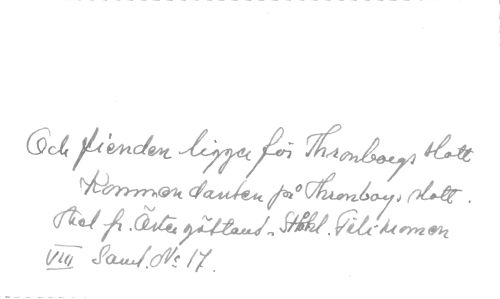 Och fienden ligger för Thronborgs slott
Kommendanten på Thronborgs slott.
fr. Östergötland. Sthkl. Filikromen
VIII Saml. No 17.